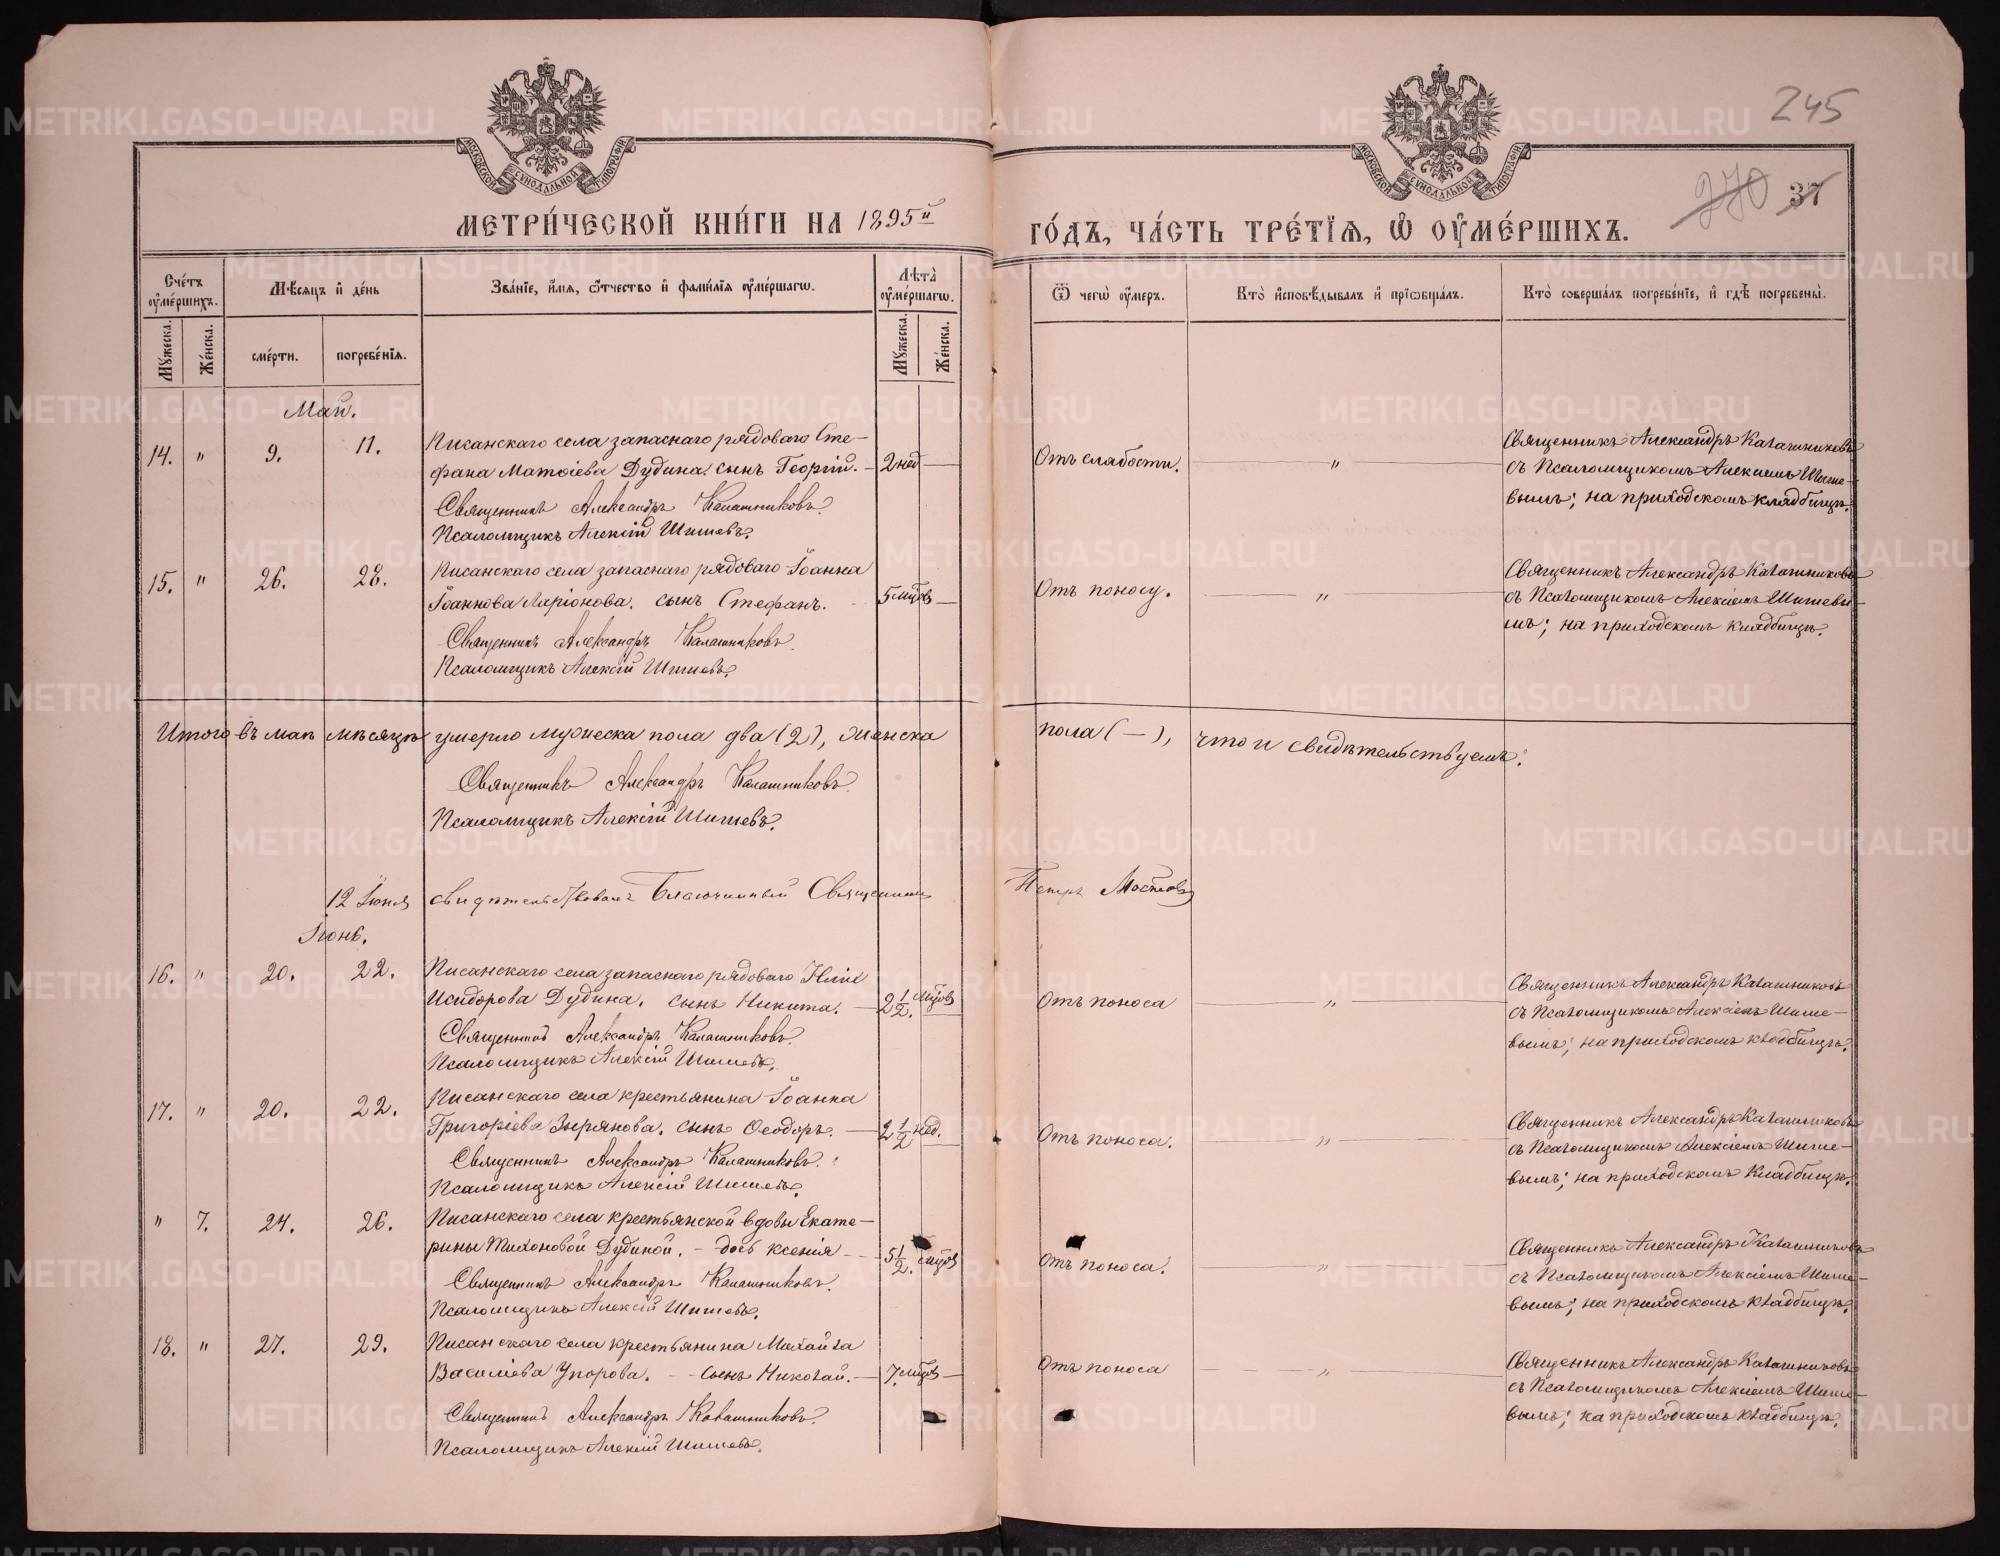 245
270 37
МОСКОВСКОЙ СѴНОДАЛЬНОЙ ТИПОГРАФІИ
МОСКОВСКОЙ СѴНОДАЛЬНОЙ ТИПОГРАФІИ
МЕТРИ́ЧЕСКОЙ КНИ́ГИ НА 1895й ГО́ДЪ, ЧА́СТЬ ТРЕ́ТІЯ, Ѿ ОУМЕ́РШИХЪ.
Сче́тъ оуме́ршихъ.
Мѣ́сяцъ и де́нь
Зва́ніе, и́мя, о́тчество и фами́лія оуме́ршагѡ.
Лѣта̀ оуме́ршагѡ.
Ѿ чегѡ̀ оу́меръ.
Кто̀ исповѣ́дывалъ и пріѡбща́лъ.
Кто̀ соверша́лъ погребе́ніе, и гдѣ̀ погребены̀.
Мꙋ́жеска.
Же́нска.
сме́рти.
погребе́нія.
Мꙋ́жеска.
Же́нска.
Май.
14. " 9. 11. Писанскаго села запаснаго рядоваго Сте-
фана Матѳіева Дудина. сынъ Георгій. — 2 нед —
Священникъ Александръ Калашниковъ.
Псаломщикъ Алексій Шишевъ.
Отъ слабости. "
Священникъ Александръ Калашниковъ
съ Псаломщикомъ Алексіемъ Шише-
вымъ; на приходскомъ кладбищѣ.
15. " 26. 28. Писанскаго села запаснаго рядоваго Іоанна
Іоаннова Ларіонова. сынъ Стефанъ. - 5 мцов —
Священникъ Александръ Калашниковъ.
Псаломщикъ Алексій Шишевъ.
Отъ поносу. "
Священникъ Александръ Калашниковъ
съ Псаломщикомъ Алексіемъ Шишевы-
мъ; на приходскомъ кладбищѣ.
Итого въ маѣ мѣсяцѣ умерло мужеска пола два (2), женска пола (—), что и свидѣтельствуемъ:
Священникъ Александръ Калашниковъ.
Псаломщикъ Алексій Шишевъ.
12 Іюня свидѣтельствовалъ Благочинный Священникъ Петръ
Іюнь.
16. " 20. 22. Писанскаго села запаснаго рядоваго Иліи
Исидорова Дудина. сынъ Никита. — 2 1/2. мцов
Священникъ Александръ Калашниковъ.
Псаломщикъ Алексій Шишевъ.
Отъ поноса "
Священникъ Александръ Калашниковъ
съ Псаломщикомъ Алексіемъ Шише-
вымъ; на приходскомъ кладбищѣ.
17. " 20. 22. Писанскаго села крестьянина Іоанна
Григоріева Зырянова. сынъ Ѳеодоръ. — 2 1/2 нед.
Священникъ Александръ Калашниковъ.
Псаломщикъ Алексій Шишевъ.
Отъ поноса. "
Священникъ Александръ Калашниковъ
съ Псаломщикомъ Алексіемъ Шише-
вымъ; на приходскомъ Кладбищѣ.
" 7. 24. 26. Писанскаго села крестьянской вдовы Екате-
рины Тихоновой Дудиной. - дочь Ксенія - - 5 1/2. мцов
Священникъ Александръ Калашниковъ.
Псаломщикъ Алексій Шишевъ.
Отъ поноса. "
Священникъ Александръ Калашниковъ
съ Псаломщикомъ Алексіемъ Шише-
вымъ; на приходскомъ кладбищѣ.
18. " 27. 29. Писанскаго села крестьянина Михаила
Василіева Упорова. - - сынъ Николай. — 7 мцов —
Священникъ Александръ Калашниковъ.
Псаломщикъ Алексій Шишевъ.
Отъ поноса "
Священникъ Александръ Калашниковъ
съ Псаломщикомъ Алексіемъ Шише-
вымъ; на приходскомъ кладбищѣ.
METRIKI.GASO-URAL.RU